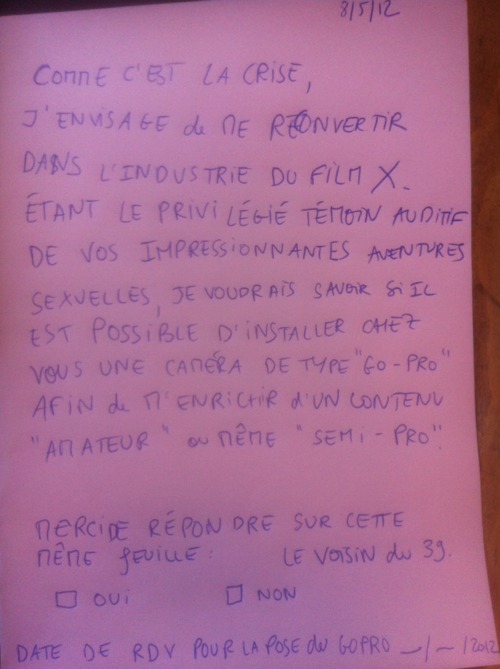 8/5/12
COMME C'EST LA CRISE,
J'ENVISAGE de ME RECONVERTIR
DANS L'INDUSTRIE DU FILM X.
ÉTANT LE PRIVILÉGIÉ TÉMOIN AUDITIF
DE VOS IMPRESSIONNANTES AVENTURES
SEXUELLES, JE VOUDRAIS SAVOIR SI IL
EST POSSIBLE D'INSTALLER CHEZ
VOUS UNE CAMÉRA DE TYPE "GO-PRO"
AFIN de M'ENRICHIR d'UN CONTENU
"AMATEUR" ou MÊME "SEMI-PRO".
MERCI DE RÉPONDRE SUR CETTE
MÊME feuille: LE VOISIN du 39.
□ OUI □ NON
DATE DE RDV POUR LA POSE du GOPRO __/__/2012